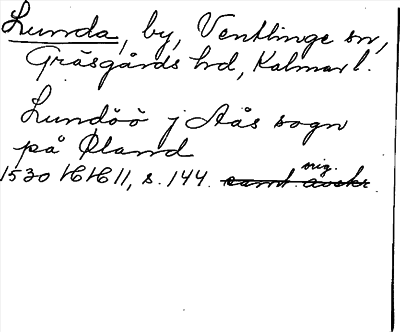 Lunda, by, Ventlinge sn,
Gräsgårds hd, Kalmar l.
Lundöö j Aås sogn
på Øland
orig.
1530 HH II, s. 144. samt. avskr.